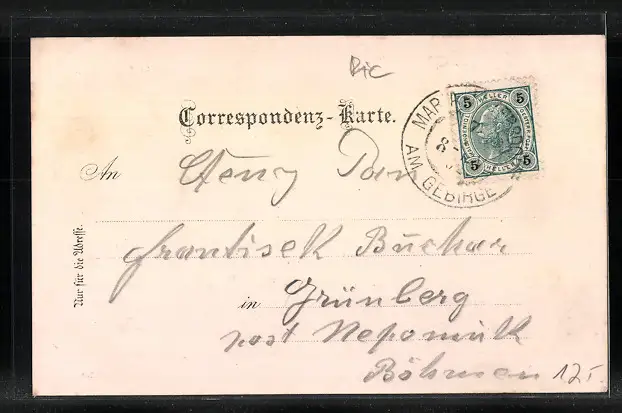 Ric
Correspondenz-Karte.
5 HELLER 5
5 HELLER 5
MAR
AM GEBIRGE
8
An
Pan
Nur für die Adresse.
František Buchar
in Grünberg
post Nepomuk
Böhmen
12,-